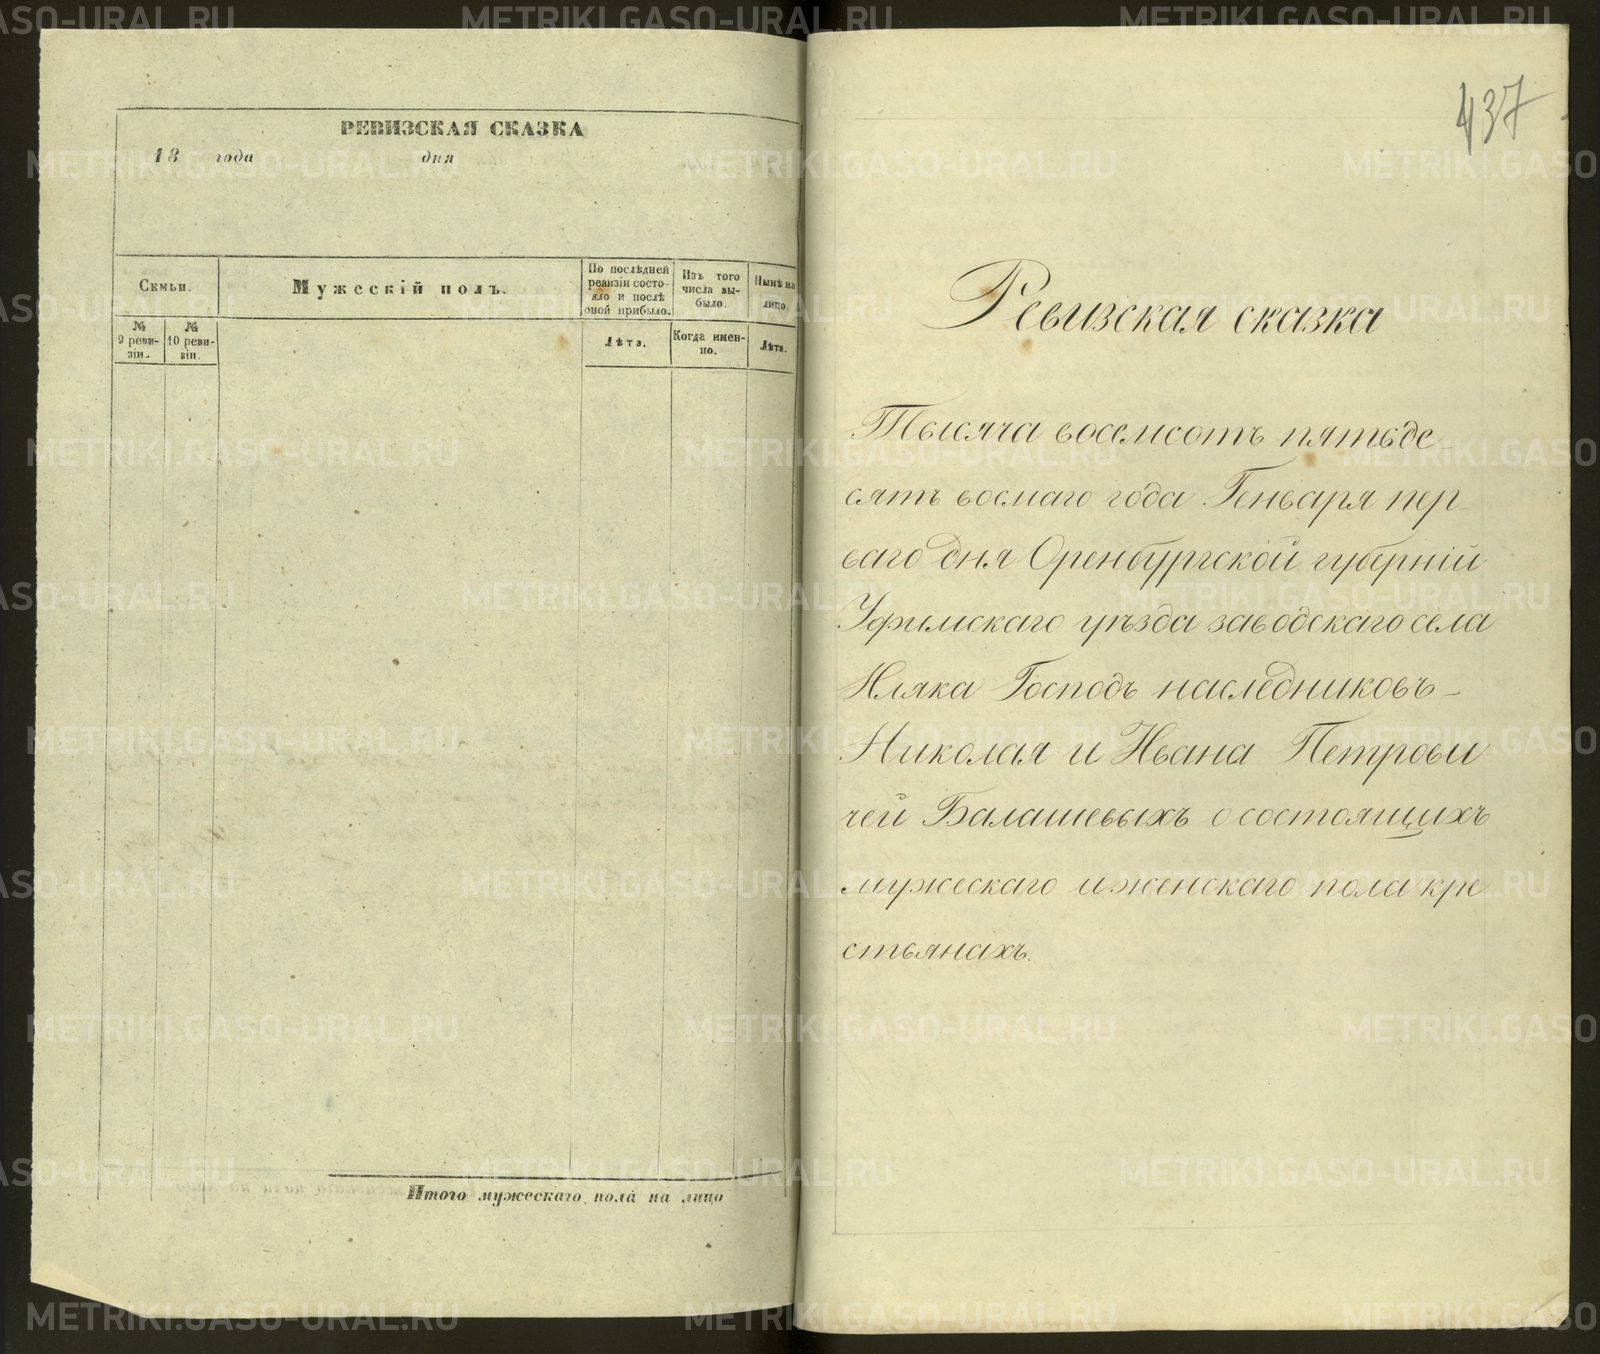 РЕВИЗСКАЯ СКАЗКА
18 года дня
Семьи.
Мужескій полъ.
По послѣдней ревизіи состояло и послѣ оной прибыло.
Изъ того числа выбыло.
Нынѣ на лицо.
№ 9 ревизіи.
№ 10 ревизіи.
Лѣта.
Когда именно.
Лѣта.
Итого мужескаго пола на лицо
437
Ревизская сказка
Тысяча восемсотъ пятьде
сятъ восмаго года Генваря пер
ваго дня Оренбургской губерніи
Уфимскаго уѣзда заводскаго села
Иляка Господъ наследниковъ
Николая и Ивана Петрови
чей Балашевыхъ о состоящихъ
мужескаго и женскаго пола кре
стьянахъ.
METRIKI.GASO-URAL.RU